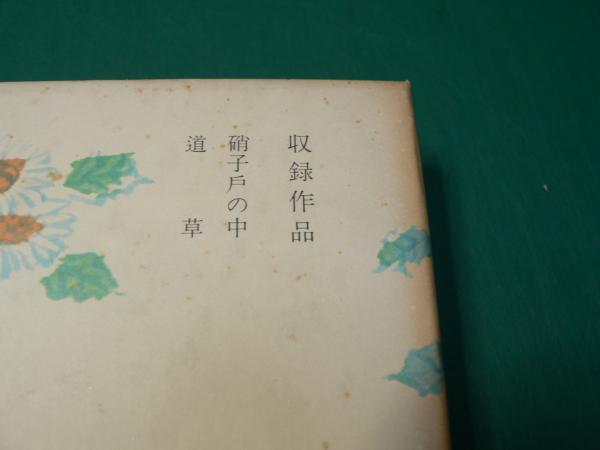 収録作品
硝子戸の中
道草